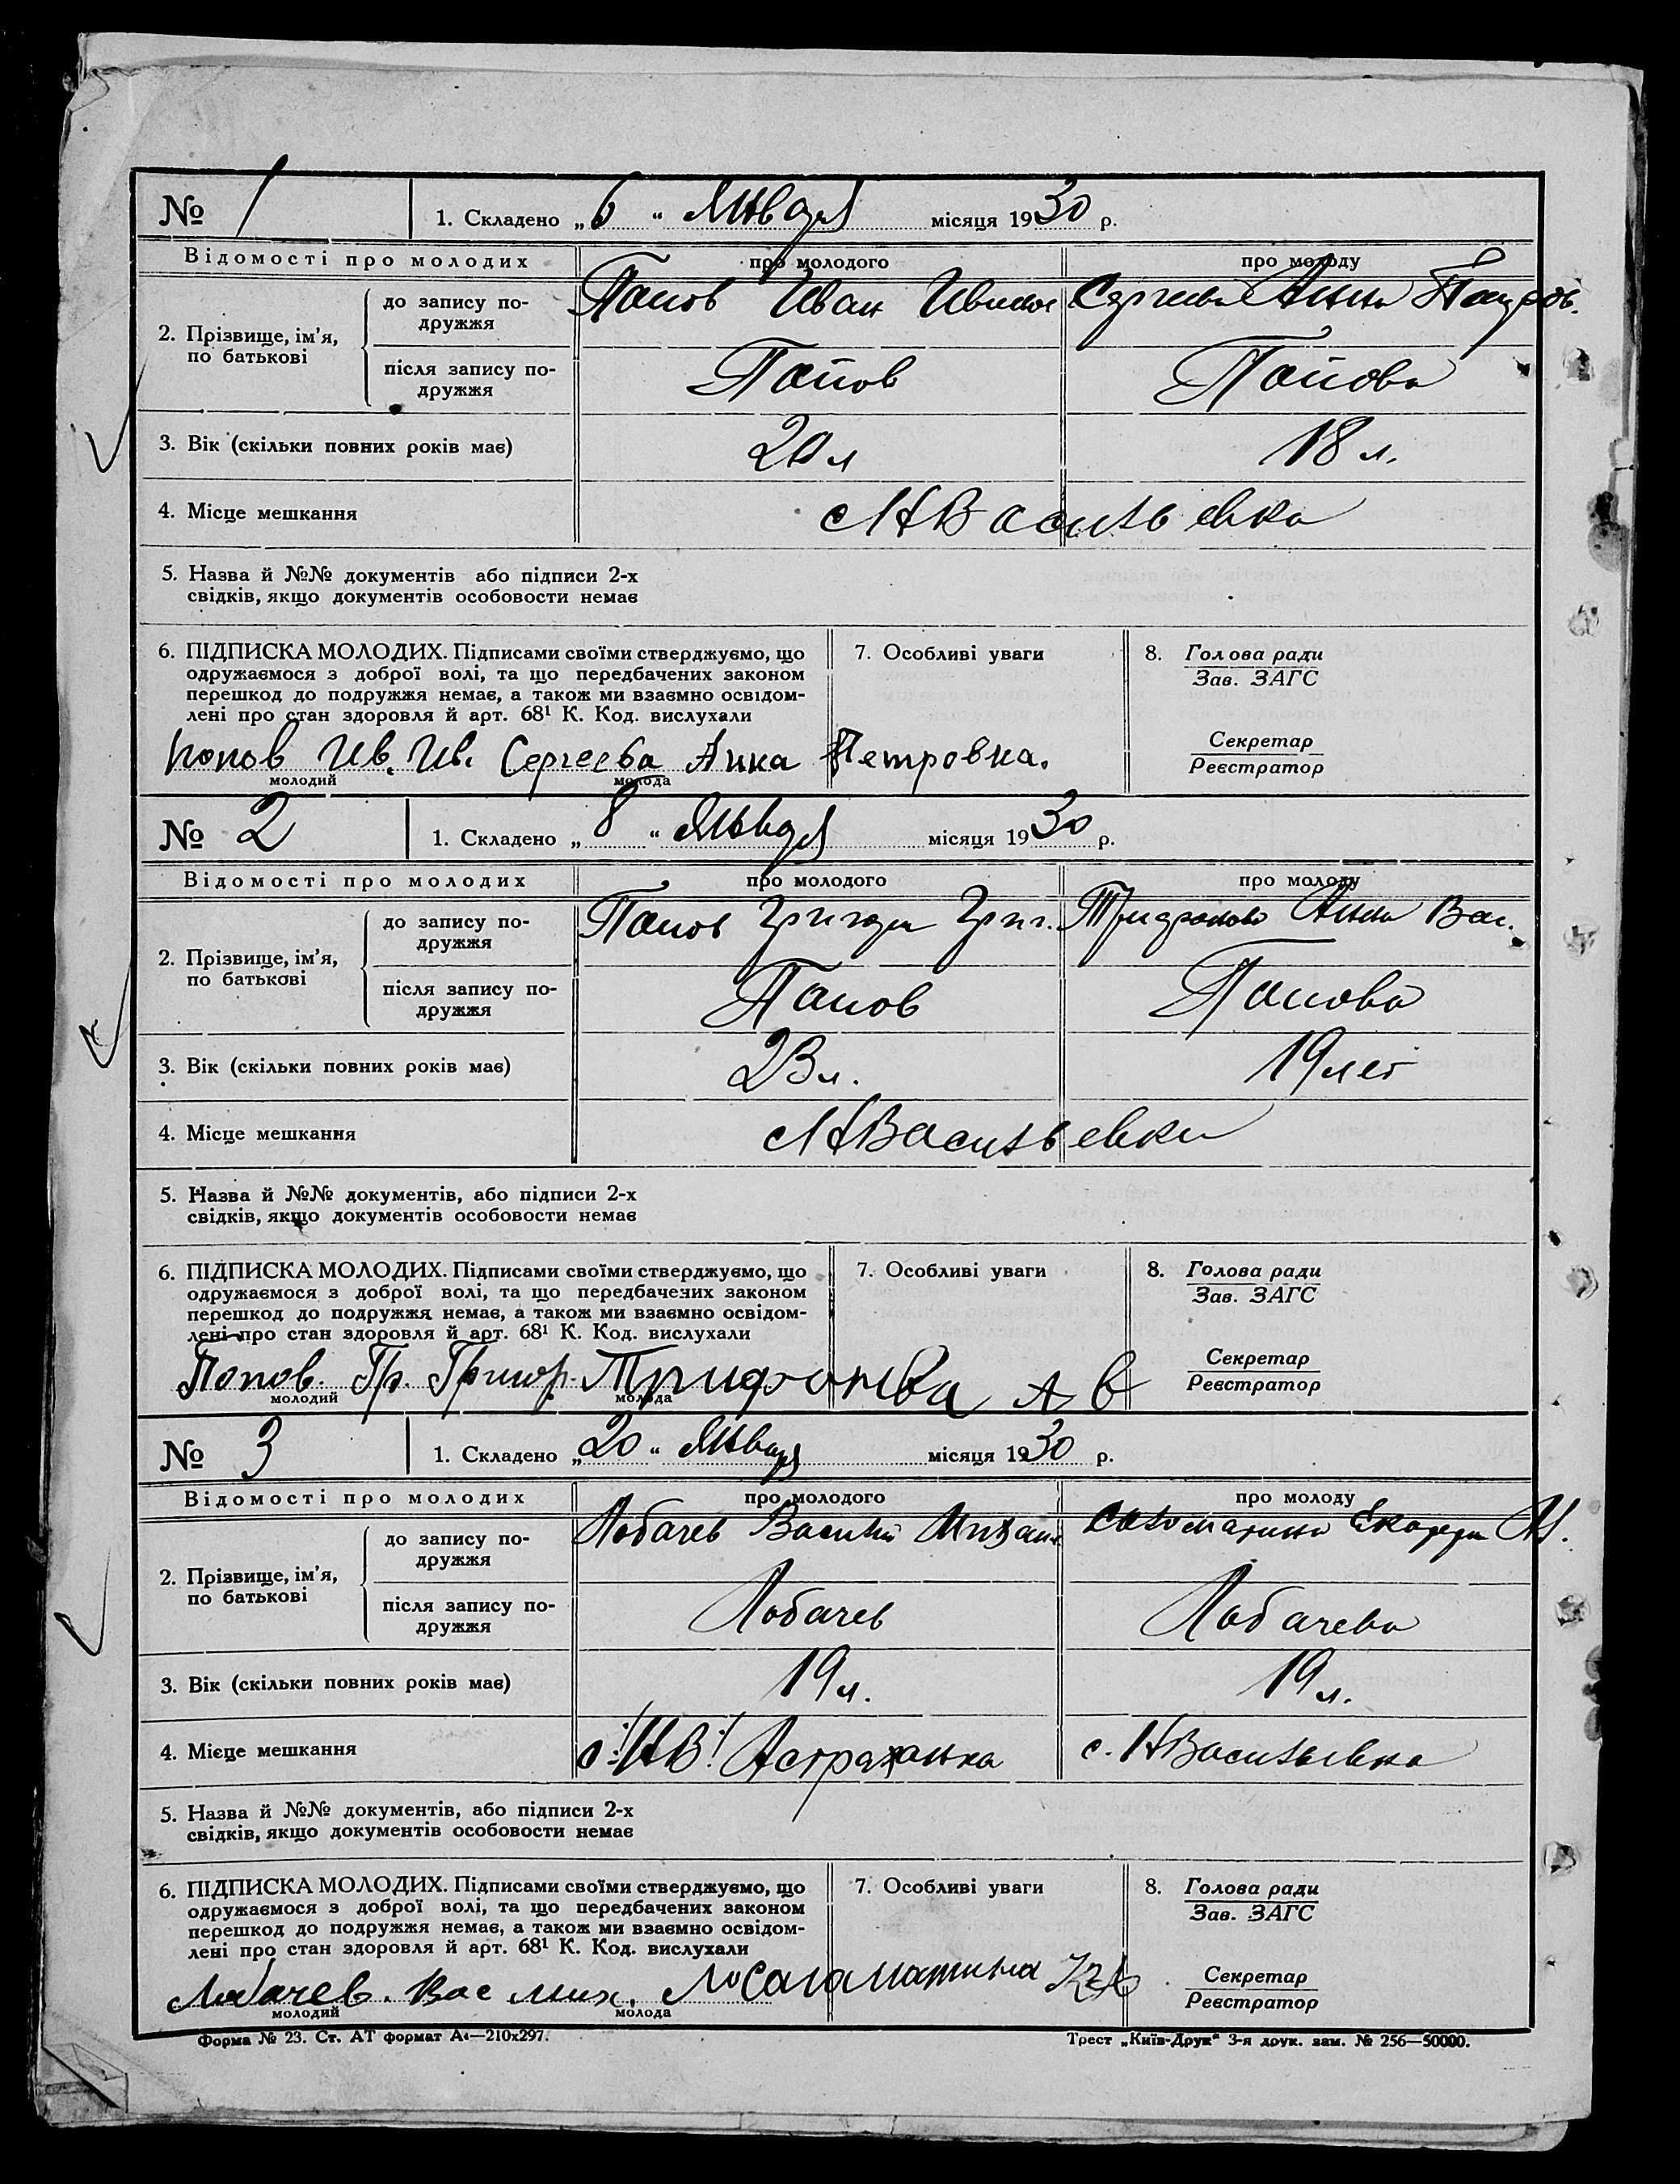 № 1 1. Складено „6“ Января місяця 1930 р.
Відомості про молодих про молодого про молоду
2. Прізвище, ім’я, по батькові
до запису подружжя Попов Иван Иванов Сергеева Анна Петров.
після запису подружжя Попов Попова
3. Вік (скільки повних років має) 20 л 18 л.
4. Місце мешкання с НВасильевка
5. Назва й №№ документів або підписи 2-х
свідків, якщо документів особовости немає
6. ПІДПИСКА МОЛОДИХ. Підписами своїми стверджуємо, що
одружаємося з доброї волі, та що передбачених законом
перешкод до подружжя немає, а також ми взаємно освідом-
лені про стан здоровля й арт. 68¹ К. Код. вислухали
7. Особливі уваги
8. Голова ради
Зав. ЗАГС
Секретар
Реєстратор
Попов Ив. Ив. Сергеева Анна Петровна.
молодий молода
№ 2 1. Складено „8“ Января місяця 1930 р.
Відомості про молодих про молодого про молоду
2. Прізвище, ім’я, по батькові
до запису подружжя Попов Григори Григ. Трифонова Анна Вас.
після запису подружжя Попов Попова
3. Вік (скільки повних років має) 23 л. 19 лет
4. Місце мешкання с НВасильевка
5. Назва й №№ документів, або підписи 2-х
свідків, якщо документів особовости немає
6. ПІДПИСКА МОЛОДИХ. Підписами своїми стверджуємо, що
одружаємося з доброї волі, та що передбачених законом
перешкод до подружжя немає, а також ми взаємно освідом-
лені про стан здоровля й арт. 68¹ К. Код. вислухали
7. Особливі уваги
8. Голова ради
Зав. ЗАГС
Секретар
Реєстратор
Попов. Гр. Григор. Трифонва А В
молодий молода
№ 3 1. Складено „20“ Января місяця 1930 р.
Відомості про молодих про молодого про молоду
2. Прізвище, ім’я, по батькові
до запису подружжя Лобачев Василий Михаил
після запису подружжя Лобачев Лобачева
3. Вік (скільки повних років має) 19 л. 19 л.
4. Мієце мешкання с. НВ Астраханка с. НВасильевка
5. Назва й №№ документів, або підписи 2-х
свідків, якщо документів особовости немає
6. ПІДПИСКА МОЛОДИХ. Підписами своїми стверджуємо, що
одружаємося з доброї волі, та що передбачених законом
перешкод до подружжя немає, а також ми взаємно освідом-
лені про стан здоровля й арт. 68¹ К. Код. вислухали
7. Особливі уваги
8. Голова ради
Зав. ЗАГС
Секретар
Реєстратор
Лобачев. Вас мих.
молодий молода
Форма № 23. Ст. АТ формат А₄—210х297. Трест „Київ-Друк“ 3-я друк. зам. № 256—50000.